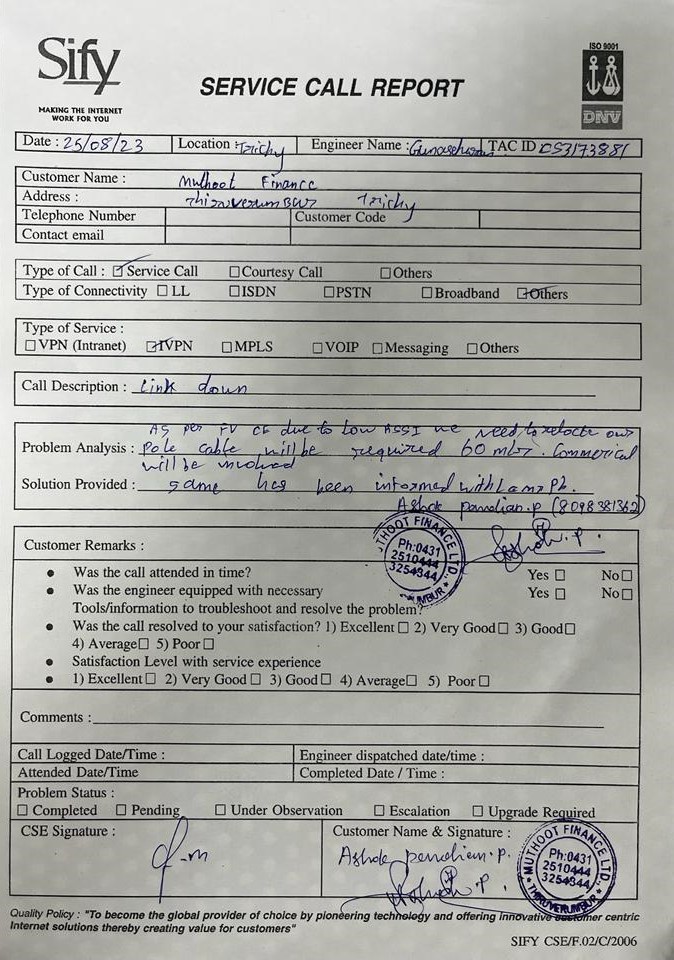 Sify
MAKING THE INTERNET
WORK FOR YOU
SERVICE CALL REPORT
ISO 9001
DNV
Date : 25/08/23 Location : Trichy Engineer Name : TAC ID CS3173881
Customer Name : Muthoot Finance
Address : Trichy
Telephone Number Customer Code
Contact email
Type of Call : ☑ Service Call ☐ Courtesy Call ☐ Others
Type of Connectivity ☐ LL ☐ ISDN ☐ PSTN ☐ Broadband ☑ Others
Type of Service :
☐ VPN (Intranet) ☑ IVPN ☐ MPLS ☐ VOIP ☐ Messaging ☐ Others
Call Description : Link down
As per due to low we need to our
Problem Analysis : Pole cable will be required 60 mtrs. Commerical
will be involved
Solution Provided : same has been informed with
Ashok pandian.p (8098381362)
MUTHOOT FINANCE LTD.
Ph:0431
2510444
3254344
Customer Remarks :
• Was the call attended in time? Yes ☐ No ☐
• Was the engineer equipped with necessary Yes ☐ No ☐
Tools/information to troubleshoot and resolve the problem?
• Was the call resolved to your satisfaction? 1) Excellent ☐ 2) Very Good ☐ 3) Good ☐
4) Average ☐ 5) Poor ☐
• Satisfaction Level with service experience
• 1) Excellent ☐ 2) Very Good ☐ 3) Good ☐ 4) Average ☐ 5) Poor ☐
Comments :
Call Logged Date/Time : Engineer dispatched date/time :
Attended Date/Time Completed Date / Time :
Problem Status :
☐ Completed ☐ Pending ☐ Under Observation ☐ Escalation ☐ Upgrade Required
CSE Signature : Customer Name & Signature :
Ashok pandian.p.
MUTHOOT FINANCE LTD.
Ph:0431
2510444
3254344
THIRUVERUMBUR
Quality Policy : "To become the global provider of choice by pioneering technology and offering innovative customer centric
Internet solutions thereby creating value for customers"
SIFY CSE/F.02/C/2006